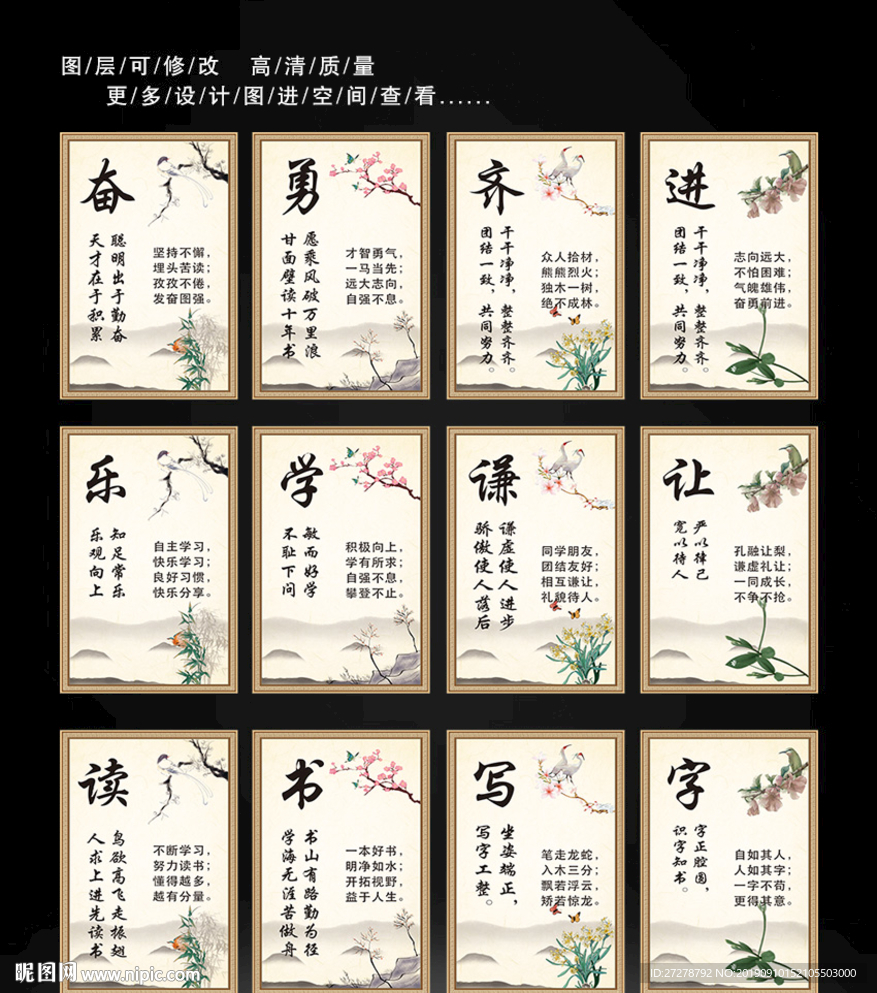 图/层/可/修/改 高/清/质/量
更/多/设/计/图/进/空/间/查/看......
奋
聪明出于勤奋
天才在于积累
坚持不懈，
埋头苦读；
孜孜不倦，
发奋图强。
勇
愿乘风破万里浪
甘面壁读十年书
才智勇气，
一马当先；
远大志向，
自强不息。
齐
干干净净，整整齐齐。
团结一致，共同努力。
众人拾材，
熊熊烈火；
独木一树，
绝不成林。
进
干干净净，整整齐齐。
团结一致，共同努力。
志向远大，
不怕困难；
气魄雄伟，
奋勇前进。
乐
知足常乐
乐观向上
自主学习，
快乐学习；
良好习惯，
快乐分享。
学
敏而好学
不耻下问
积极向上，
学有所求；
自强不息，
攀登不止。
谦
谦虚使人进步
骄傲使人落后
同学朋友，
团结友好；
相互谦让，
礼貌待人。
让
严以律己
宽以待人
孔融让梨，
谦虚礼让；
一同成长，
不争不抢。
读
鸟欲高飞先振翅
人求上进先读书
不断学习，
努力读书；
懂得越多，
越有分量。
书
书山有路勤为径
学海无涯苦做舟
一本好书，
明净如水；
开拓视野，
益于人生。
写
坐姿端正，
写字工整。
笔走龙蛇，
入木三分；
飘若浮云，
矫若惊龙。
字
字正腔圆，
识字知书。
自如其人，
人如其字；
一字不苟，
更得其意。
昵图网 www.nipic.com
ID:27278792 NO:20190910152105503000